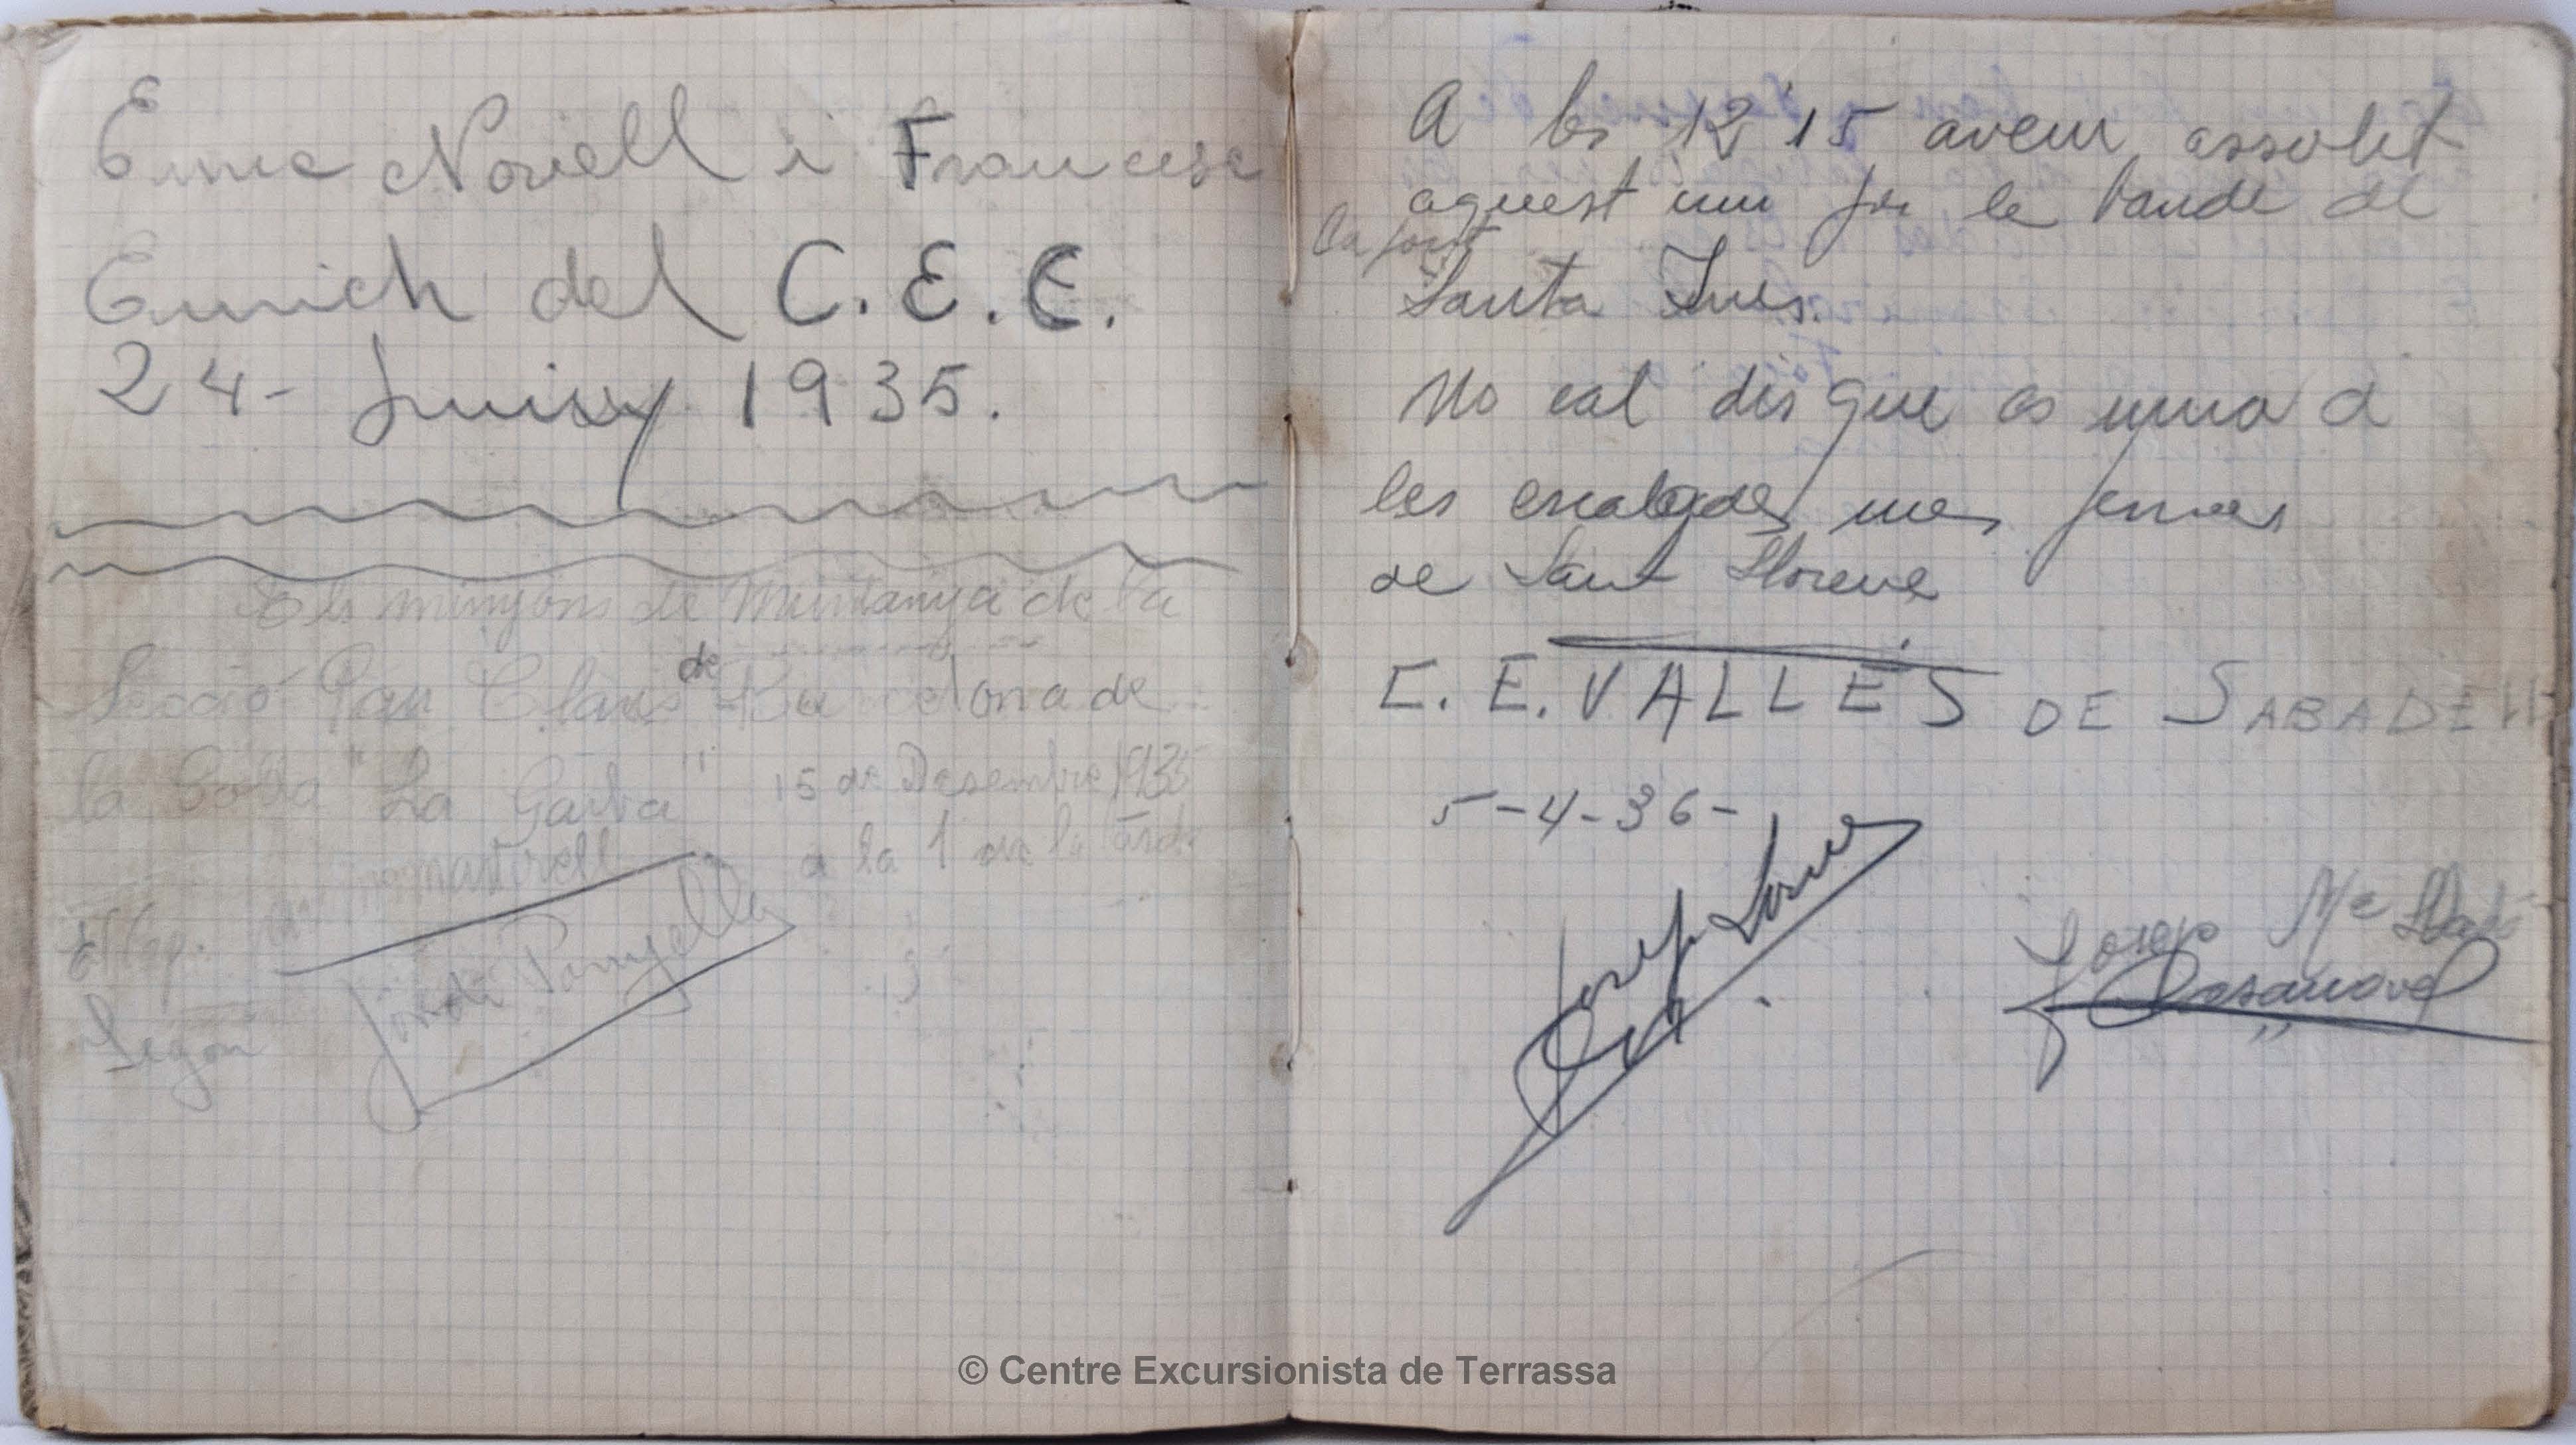 Enric Novell i Francesc
Enrich del C.E.C.
24- Juny 1935.
Els minyons de Muntanya de la
Secció Pau Claris de Barcelona de
la Colla "La Garba" 15 de Desembre 1935
a la 1 de la tarda
El Cap.
Segon
Jordi
A les 12'15 avem assolit
aquest cim per la banda de
la font
Santa Ines.
No cal dir que es una d
les escalades mes fermes
de Sant Llorenç
C. E. VALLÉS DE SABADELL
5-4-36-
Josep
Josep Mª
Casanovas
© Centre Excursionista de Terrassa